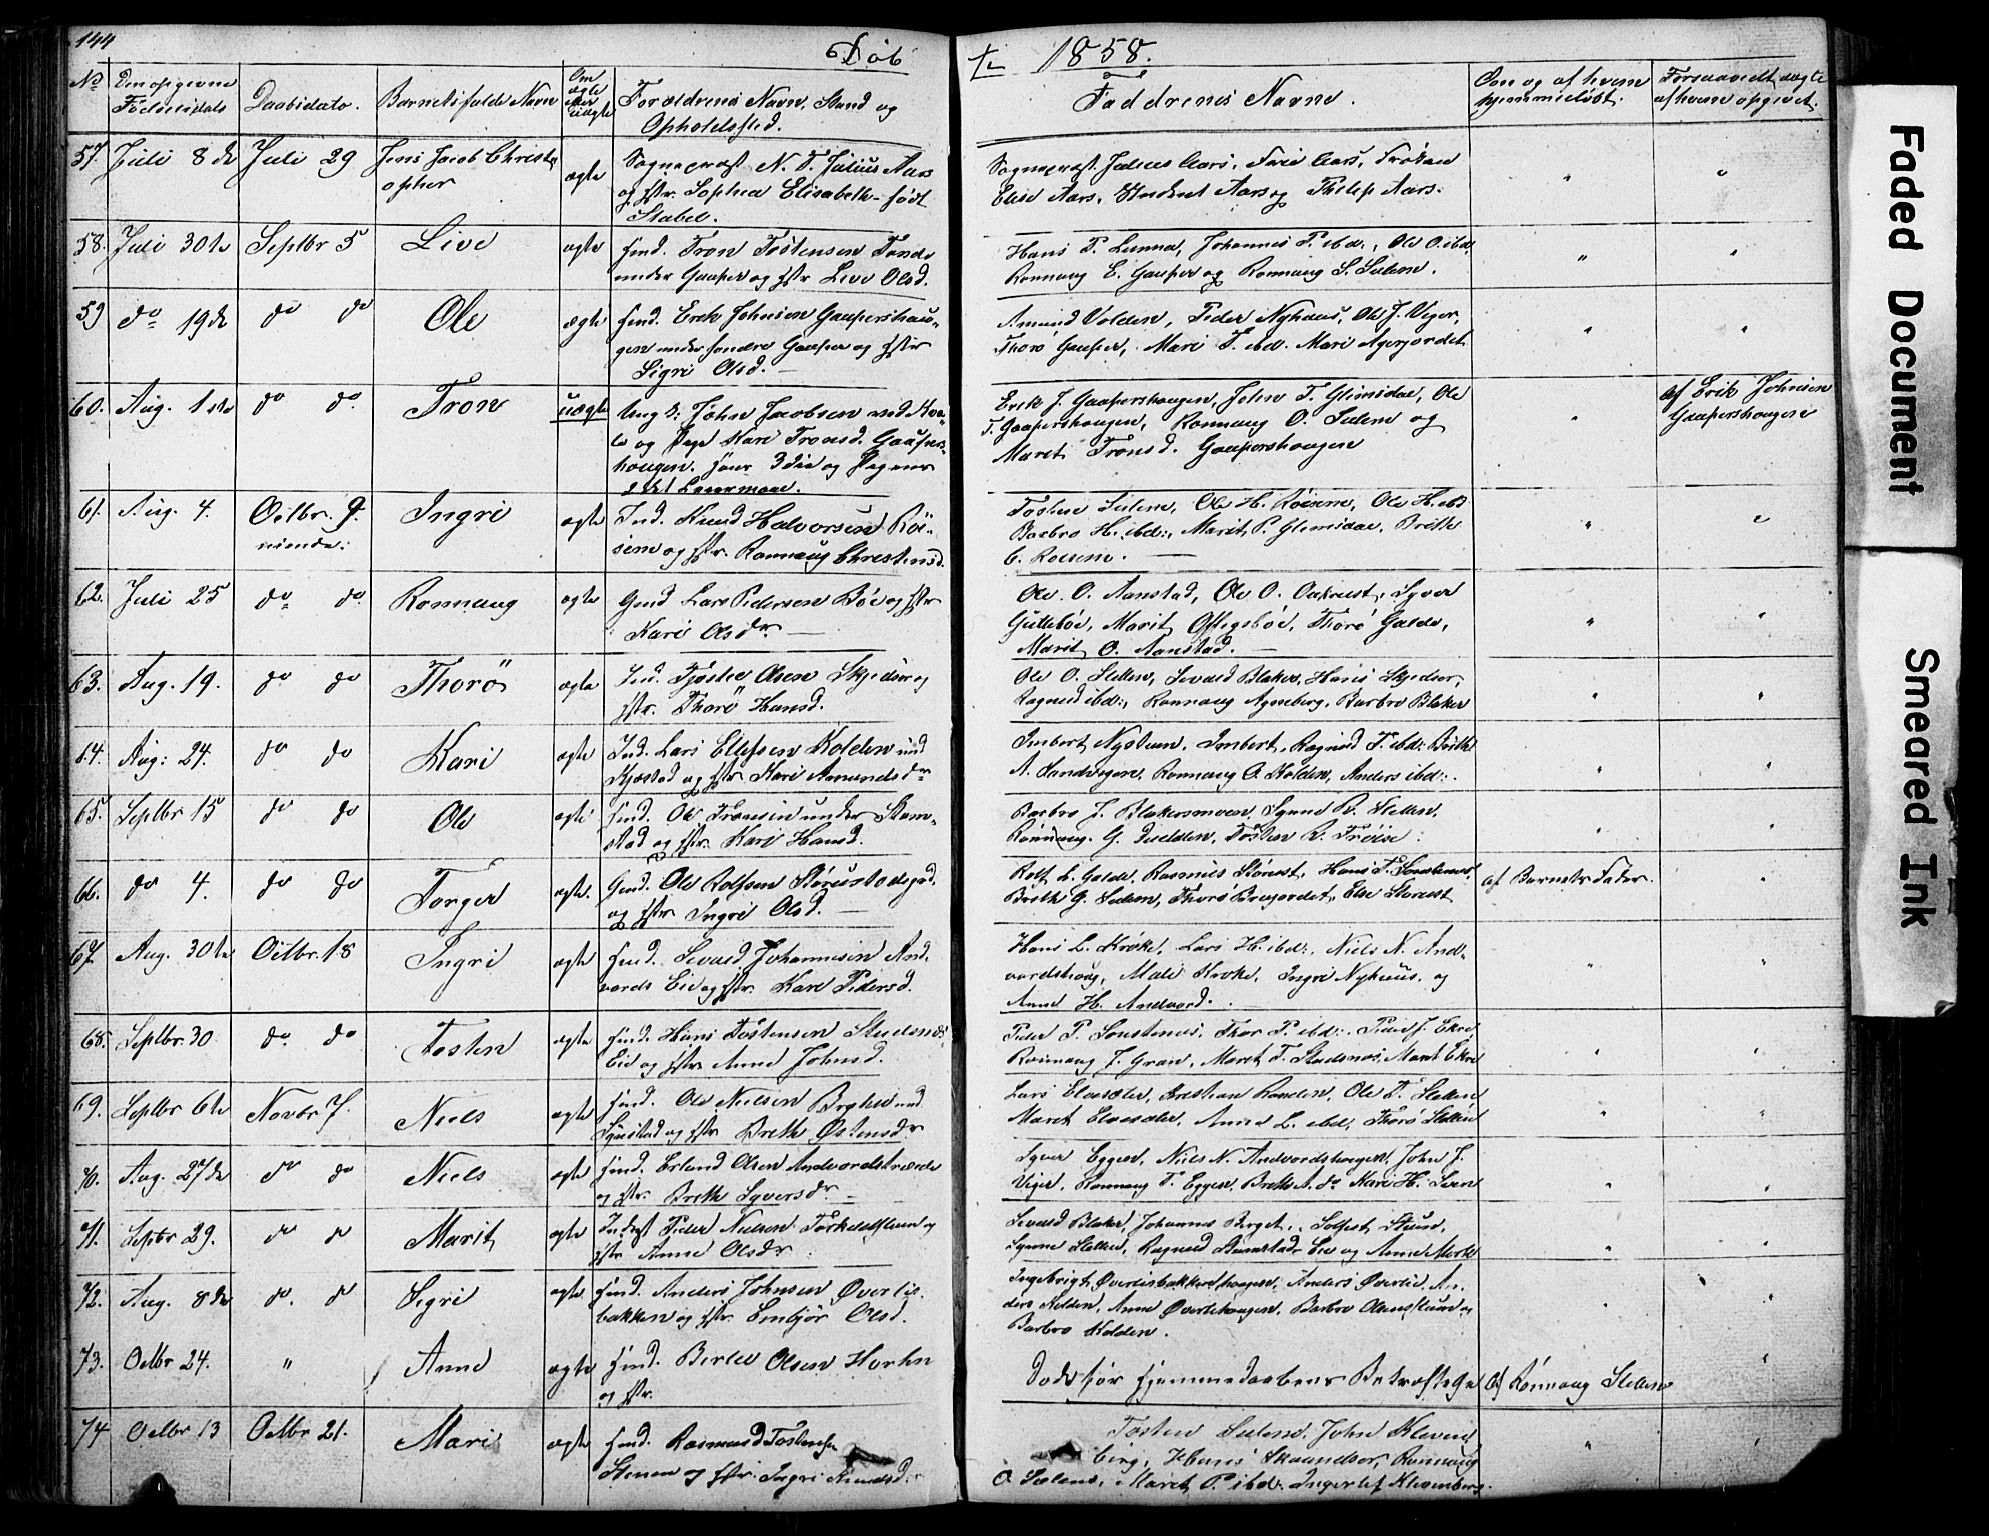 144
Döb
te 1858.
No
Den opgivne
Födselsdato
Daabsdato.
Barnets fulde Navn
Om
ægte
eller
uægte
Forældrenes Navn, Stand og
Opholdssted.
Faddrenes Navne.
Om og af hvem
hjemmedöbt.
af hvem opgivet.
57. Juli 8de Juli 29 Jens Jacob Christ
opher ægte
Sognepræst N. F. Julius Aars
og Hstr. Sophia Elisabeth född
Stabel.
Sognepræst Julius Aars, Frue Aars, Fröken
Elise Aars, Aars og Philip Aars.
58. Juli 30te Septbr 5 Live ægte
Hmd. Tron Tostensen
under Gauper og Hstr Live Olsd.
Hans P. Lunna, Johannes P. ibd., Ole O. ibd.
Ronnaug E. Gaupar og Ronnaug S. Sulem.
59 do 19de do do Ole ægte
Hmd. Erik Johnsen Gaupershau-
gen under søndre Gaupar og Hstr
Sigri Olsd.
Amund Volden, Peder Nyhuus, Ole J. Viger,
Thorö Gaupar, Mari T. ibd. Mari Agerjordet
60. Aug. 1ste do do Tron uægte
Ung K: John Jacobsen
og Pige Kari Tronsd. Gaupers-
haugen. Hans 3die og Pigens
2det Leiermaal.
Erik J. Gaupershaugen, John T. Glimsdal, Ole
T. Gaupershaugen, Ronnaug O. Sulem og
Marit Tronsd. Gaupershaugen
af Erik Johnsen
Gaupershaugen
61. Aug. 4. Octbr. 9.
niende. Ingri ægte
Ind. Knud Halvorsen Röi-
sem og Hstr. Ronnaug Christensd.
Tosten Sulem, Ole H. Röisem, Ole H. ibd
Barbro H. ibd., Marit P. Glimsdal, Brithe
C. Roisem.
62. Juli 25 do do Ronnaug ægte
Gmd Lars Pedersen Böe og Hstr
Kari Olsdr
Ole O. Aanstad, Ole O. Aakrust, Syver
Gutteböe, Marit Offigsböe, Thorö Galde,
Marit O. Aanstad.
63. Aug. 19. do do Thorö ægte
Ind. Tjöstel Olsen Skjedsør og
Hstr. Thorö Hansd.
Ole O. Sletten, Sevald Blaker, Hans Skjedsør,
Ragnild ibd., Ronnaug Agneberg, Barbro Blaker
64. Aug: 24. do do Kari ægte
Ind. Lars Ellefsen Kolden und
Kjæstad og Hstr Kari Amundsdr
Imbert Nystuen, Imbert, Ragnild T. ibd. Brith
A. Sandvigen, Ronnaug O. Kolden, Anders ibd.
65. Septbr 15 do do Ole ægte
Hmd. Ole Tronsen under Stam-
stad og Hstr. Kari Hansd.
Barbro J. Blakersmoen, Synne R. Sletten,
Rönnaug. G. Tosten R. Tröise.
66. do 4. do do Torger ægte.
Gmd. Ole Rolfsen Störustadsjød.
og Hstr Ingri Olsd.
Rolf L. Galde, Rasmus Storust, Hans T. Sonstenes
Brith G. Sulem, Thorö Brujordet, Else Storust
af Barnets Fader.
67. Aug. 30te Octbr. 18 Ingri ægte
Hmd. Sevald Johannesen And-
vords Eie og Hstr. Kari Pedersd.
Hans L. Kroke, Lars H. ibd., Niels N. And-
vordshaug, Mali Kroke, Ingri Nyhuus, og
Anne H. Andvord.
68. Septbr. 30 do do Tosten ægte
Hmd. Hans Tostensen Stadsnes
Eie og Hstr Anne Johnsd.
Peder P. Sonstenes, Thor P. ibd., Peder J. Ekre
Ronnaug J. Gran, Marit T. Stadsnes, Marit Ekre
69. Septbr 6te Novbr 7. Niels ægte
Hmd. Ole Nielsen und
og Hstr Brith Østensdr
Lars Elvesæter, Christian Randen, Ole T. Sletten
Marit Elvesæter, Anne L. ibd, Thorö Sletten
70. Aug. 27de do do Niels ægte
Hmd. Erland Olsen Andvordstræde
og Hstr. Brith Syversdr
Syver Eggen, Niels N. Andvordshaugen, John J.
Viger, Ronnaug T. Eggen, Brith A. do Kari H.
71. Septbr 29. do do Marit ægte
Inderst Peder Nielsen Torkeldstuen og
Hstr Anne Olsdr
Sevald Blaker, Johannes Berget, Solfest Stuen,
Synne Sletten, Ragnild Stamstads Eie og Anne Mork
72. Aug. 8de do. do Sigri ægte
Hmd. Anders Johnsen Øverlis-
bakken og Hstr. Embjör Olsd.
Ingebrigt Øverlisbakkenhaugen, Anders Øverlie, An-
ders Kolden, Anne Øverlihaugen, Barbro Olsenstuen og
Barbro Kolden.
73. Octbr 24. " Anne ægte
Hmd. Berle Olsen
og Hstr.
Döde för Hjemmedaabens Bekræftelse af Rönnaug Sletten
74 Octbr 13 Octbr 21. Mari ægte
Hmd. Rasmus Tostensen
Stenen og Hstr. Ingri Knudsd.
Tosten Sulem, John Kleven
berg, Hans Skaandser, Ronnaug
O. Sulems, Marit P. ibd. Inger Klevenberg.
Faded Document
Smeared Ink